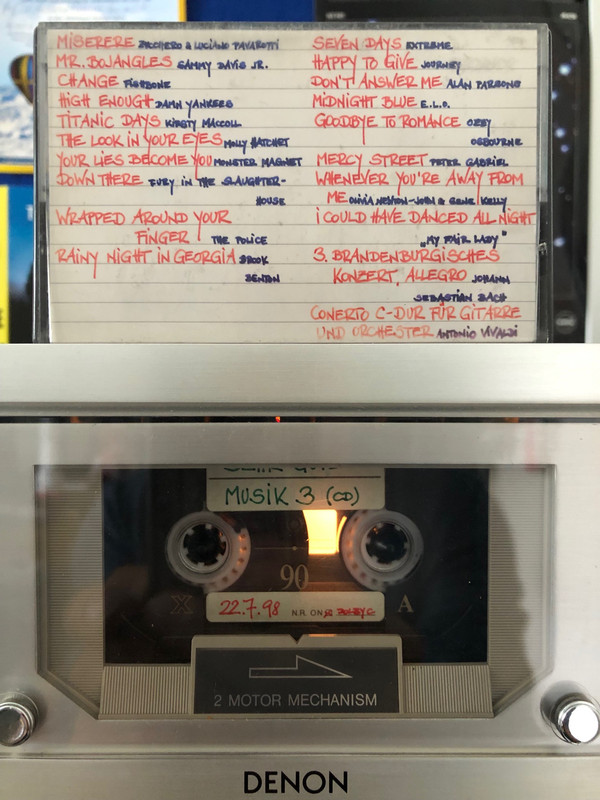 MISERERE ZUCCHERO & LUCIANO PAVAROTTI
MR. BOJANGLES SAMMY DAVIS JR.
CHANGE FISHBONE
HIGH ENOUGH DAMN YANKEES
TITANIC DAYS KIRSTY MACCOLL
THE LOOK IN YOUR EYES MOLLY HATCHET
YOUR LIES BECOME YOU MONSTER MAGNET
DOWN THERE FURY IN THE SLAUGHTER-
HOUSE
WRAPPED AROUND YOUR
FINGER THE POLICE
RAINY NIGHT IN GEORGIA BROOK
BENTON
SEVEN DAYS EXTREME
HAPPY TO GIVE JOURNEY
DON'T ANSWER ME ALAN PARSONS
MIDNIGHT BLUE E.L.O.
GOODBYE TO ROMANCE OZZY
OSBOURNE
MERCY STREET PETER GABRIEL
WHENEVER YOU'RE AWAY FROM
ME OLIVIA NEWTON-JOHN & GENE KELLY
I COULD HAVE DANCED ALL NIGHT
„MY FAIR LADY"
3. BRANDENBURGISCHES
KONZERT, ALLEGRO JOHANN
SEBASTIAN BACH
CONERTO C-DUR FÜR GITARRE
UND ORCHESTER ANTONIO VIVALDI
MUSIK 3 (CD)
90
X
A
22.7.98 N.R. ON
2 MOTOR MECHANISM
DENON